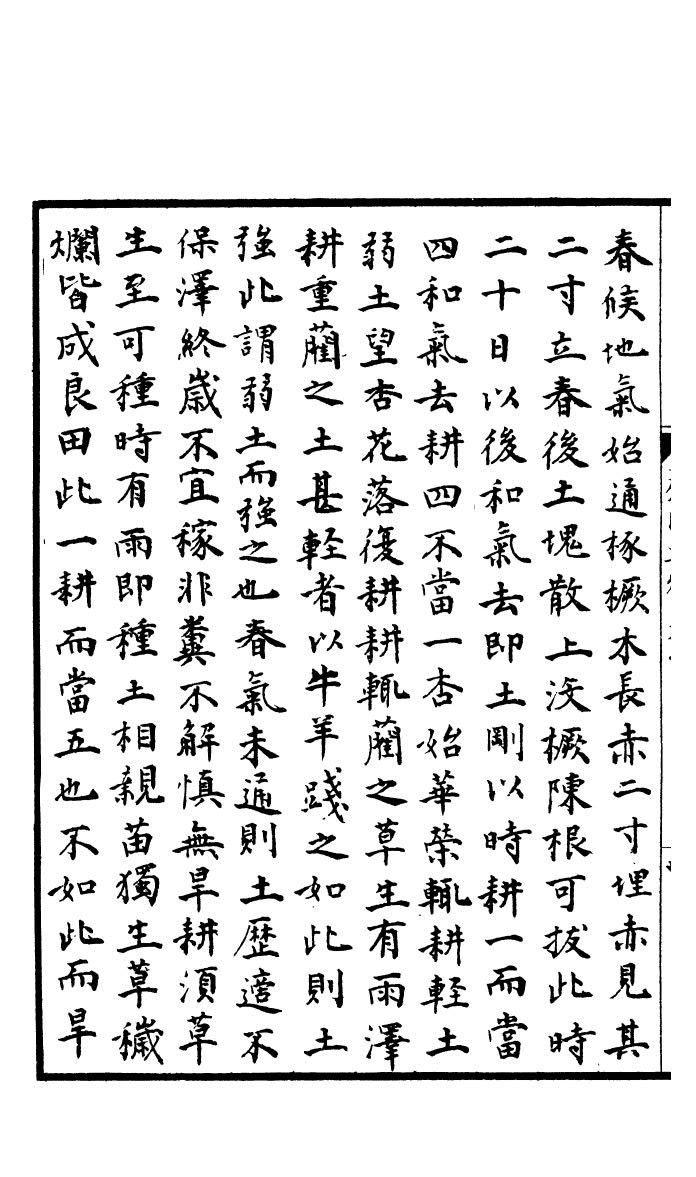 春候地氣始通椓橛木長赤二寸埋赤見其
二寸立春後土塊散上没橛陳根可拔此時
二十日以後和氣去即土剛以時耕一而當
四和氣去耕四不當一杏始華榮輒耕輕土
弱土望杏花落復耕耕輒藺之草生有雨澤
耕重藺之土甚輕者以牛羊踐之如此則土
強此謂弱土而強之也春氣未通則土歷適不
保澤終歲不宜稼非糞不解慎無旱耕須草
生至可種時有雨即種土相親苗獨生草穢
爛皆成良田此一耕而當五也不如此而旱